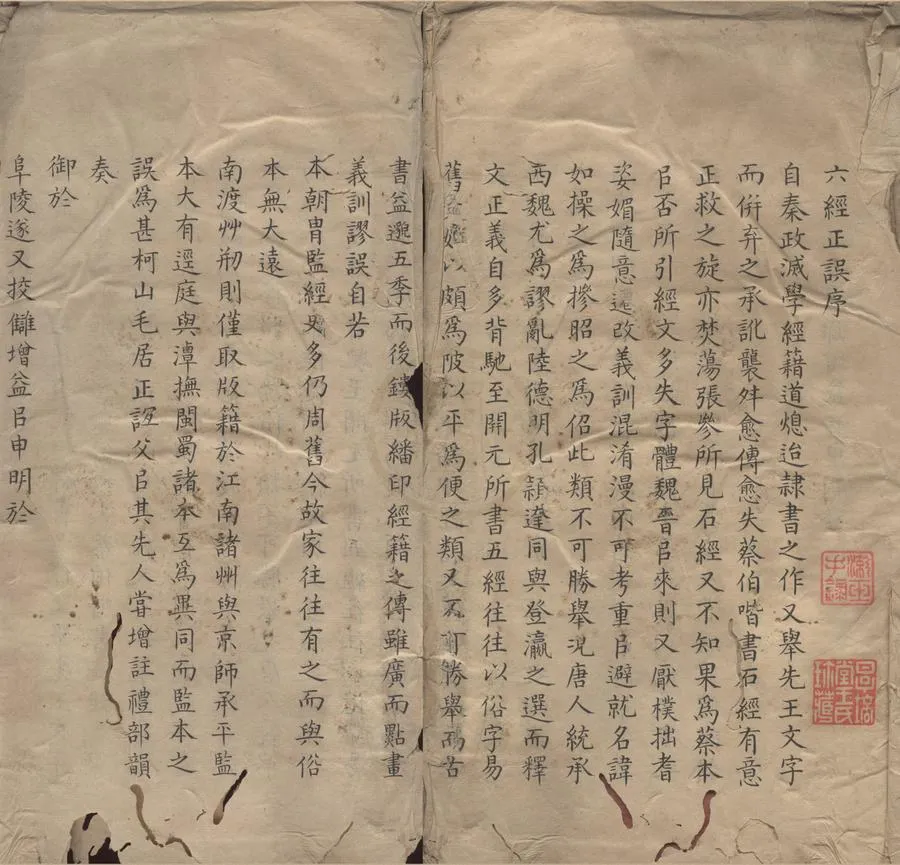 六經正誤序
自秦政滅學經籍道熄迨隸書之作又舉先王文字
而併弃之承訛襲舛愈傳愈失蔡伯喈書石經有意
正救之旋亦焚蕩張參所見石經又不知果爲蔡本
㠯否所引經文多失字體魏晉㠯來則又厭樸拙耆
姿媚隨意遷改義訓混淆漫不可考重㠯避就名諱
如操之爲摻昭之爲佋此類不可勝舉況唐人統承
西魏尤爲謬亂陸德明孔穎達同與登瀛之選而釋
文正義自多背馳至開元所書五經往往以俗字易
舊以頗爲陂以平爲便之類又不可勝舉而古
書益邈五季而後鏤版繙印經籍之傳雖廣而點畫
義訓謬誤自若
本朝冑監經史多仍周舊今故家往往有之而與俗
本無大遠
南渡艸刱則僅取版籍於江南諸州與京師承平監
本大有逕庭與潭撫閩蜀諸本互爲異同而監本之
誤爲甚柯山毛居正誼父㠯其先人嘗增註禮部韻
奏
御於
阜陵遂又挍讎增益㠯申明於